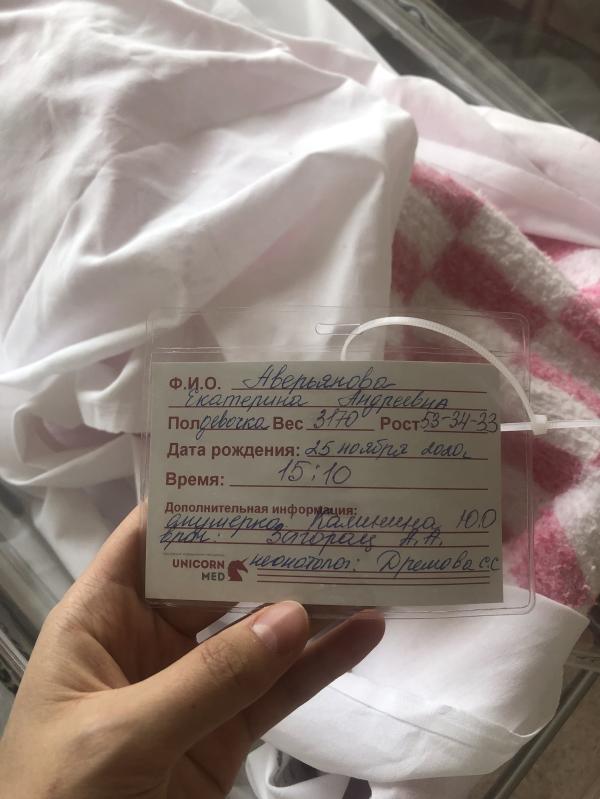 Ф.И.О. Аверьянова
Екатерина Андреевна
Пол девочка Вес 3170 Рост 53-34-33
Дата рождения: 25 ноября 2020г
Время: 15:10
Дополнительная информация:
акушерка Калинина Ю.О
врач: Загорац А.А.
UNICORN неонотолог: Дремова С.С
MED